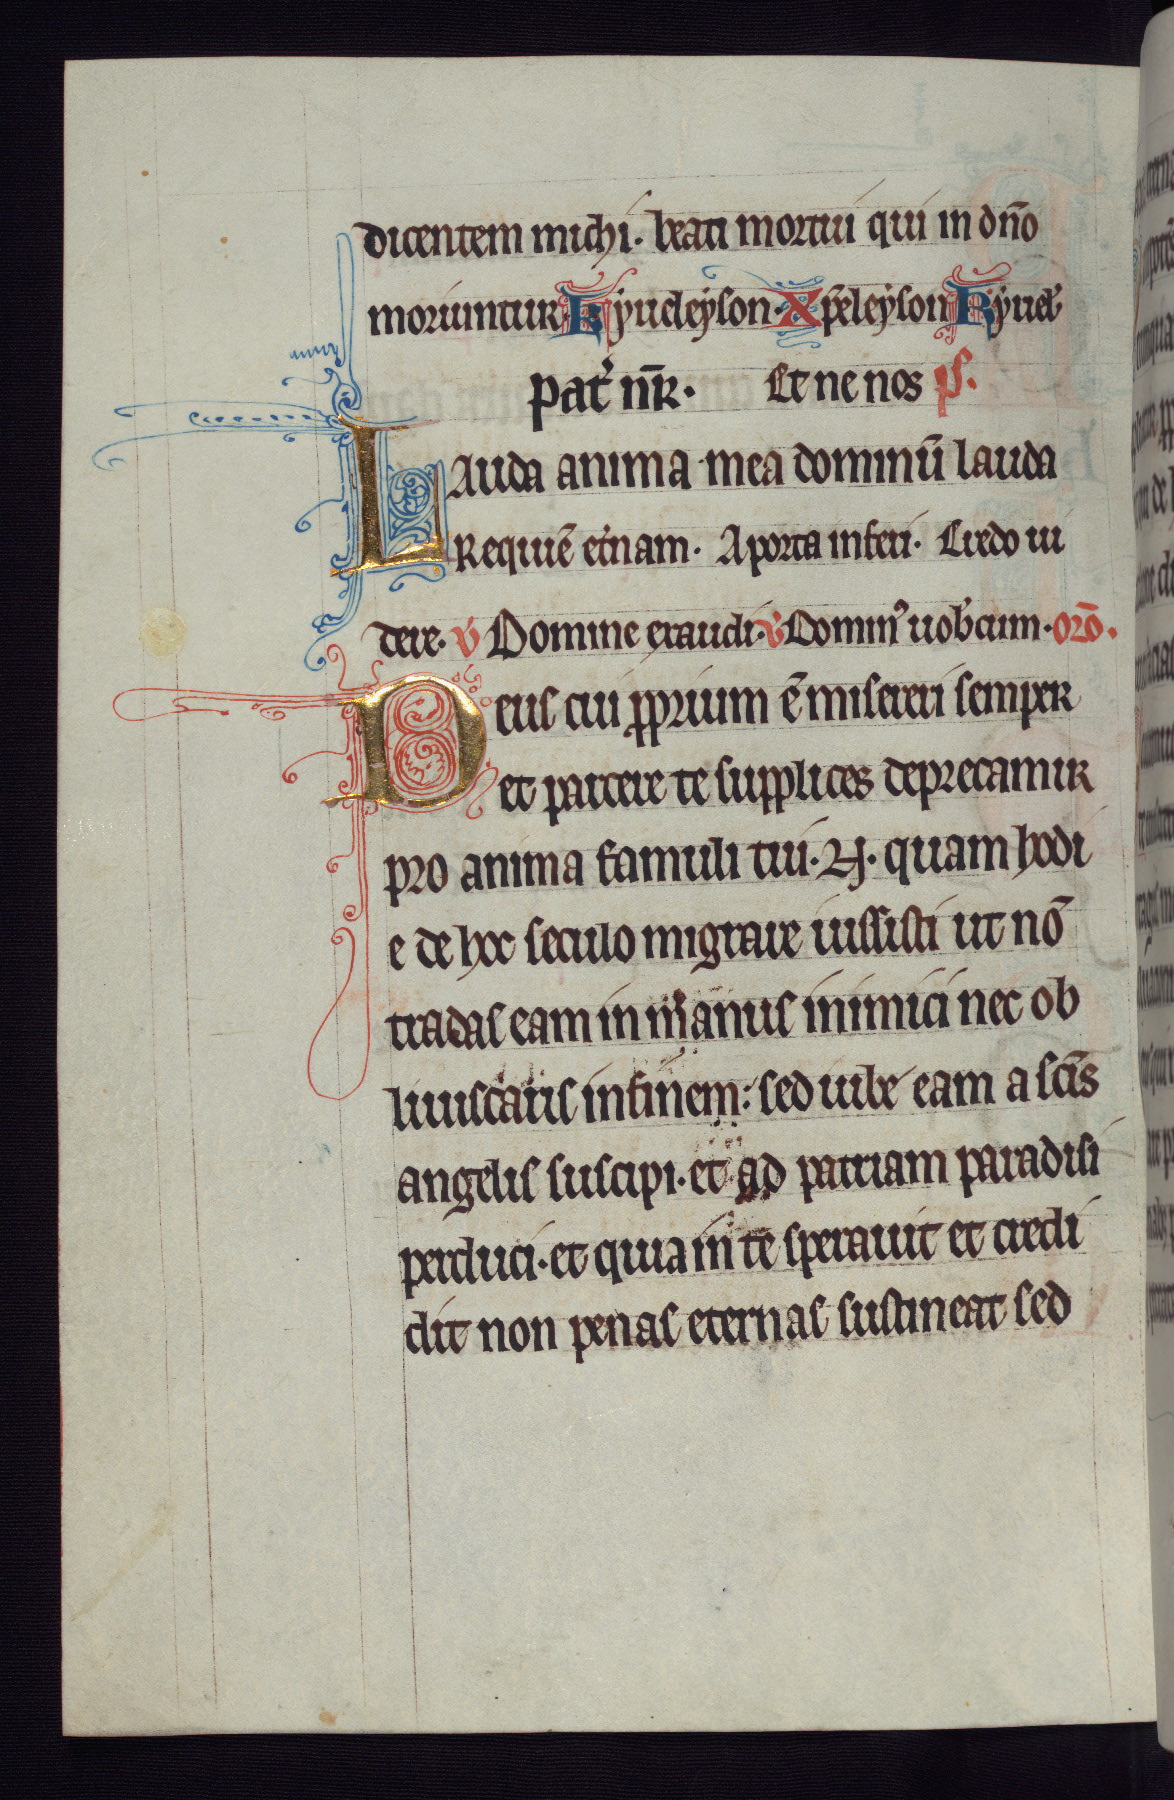 dicentem michi. beati mortui qui in dño
moriuntur. Kyrieleyson. Xp̄eleyson Kyriel'
Pat' nr̄. Et ne nos ps.
Lauda anima mea dominū lauda
Requiē et'nam. A porta inferi. Credo ui
dere. v̄ Domine exaudi. v̄ Domin' uobcum. orō.
Deus cui pprium ē misereri semper
et parcere te supplices deprecamur
pro anima famuli tui. N. quam hodi
e de hoc seculo migrare iussisti ut nō
tradas eam in manus inimici nec ob
liuiscaris in finem: sed iube eam a scīs
angelis suscipi. et ad patriam paradisi
perduci. et quia in te sperauit et credi
dit non penas eternas sustineat sed